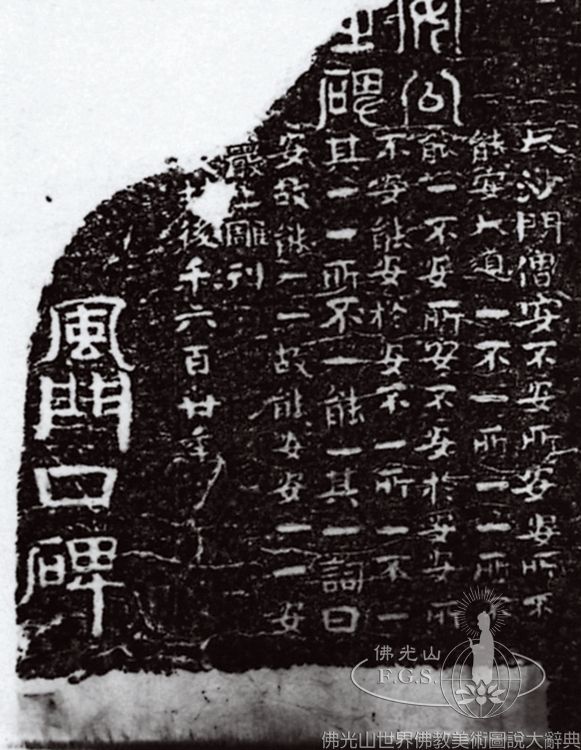 公
碑
大沙門僧安不安所安安所不
能安大道一不一所一一所不
能一不安所安不安於安安所
不安能安於安不一所一不一
其一一所不一能一其一詞曰
安故能一一故能安安一一安
嚴上雕刊
後千六百廿年
風門口碑
佛光山
F.G.S.
佛光山世界佛教美術圖說大辭典